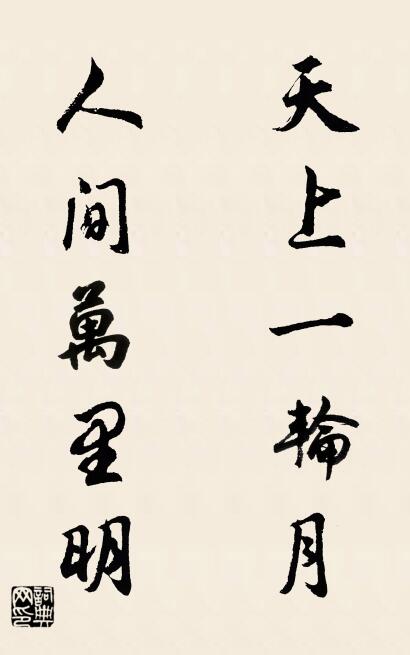 天上一輪月
人间萬里明
詞典網印